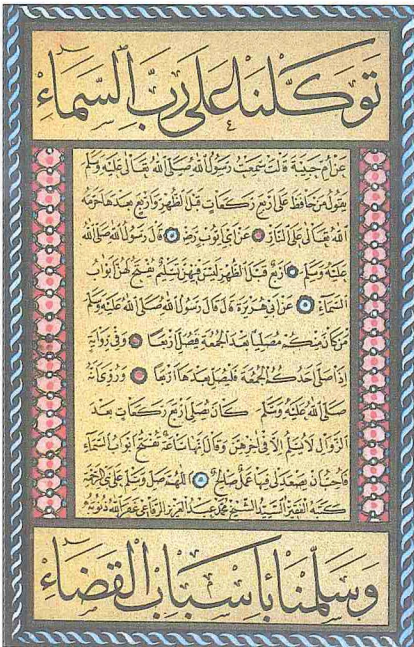 توكلنا على رب السماء
عن أم حبيبة قالت سمعت رسول الله صلى الله تعالى عليه وسلم
يقول من حافظ على أربع ركعات قبل الظهر وأربع بعدها حرمه
الله تعالى على النار عن أبي أيوب رضي قال رسول الله صلى الله
عليه وسلم أربع قبل الظهر ليس فيهن تسليم تفتح لهن أبواب
السماء عن أبي هريرة قال قال رسول الله صلى الله عليه وسلم
من كان منكم مصليا بعد الجمعة فصل أربعا وفي رواية
إذا صلى أحدكم الجمعة فليصل بعدها أربعا وروي أنه
صلى الله عليه وسلم كان يصلي أربع ركعات بعد
الزوال لا يسلم إلا في آخرهن وقال إنها ساعة تفتح أبواب السماء
فأحب أن يصعد لي فيها عمل صالح اللهم صل وسلم على نبي الرحمة
كتبه الفقير السيد الشيخ محمد عبد العزيز الرفاعي غفر الله ذنوبه
وسلمنا بأسباب القضاء